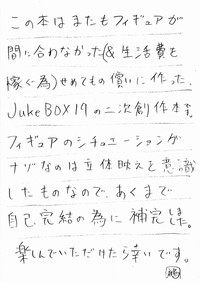 この本はまたもフィギュアが
間に合わなかった(&生活費を
稼ぐ為)せめてもの償いに作った、
JukeBOX19の二次創作本です。
フィギュアのシチュエーションが
ナゾなのは立体映えを意識
したものなので、あくまで
自己完結の為に補完しました。
楽しんでいただけたら幸いです。